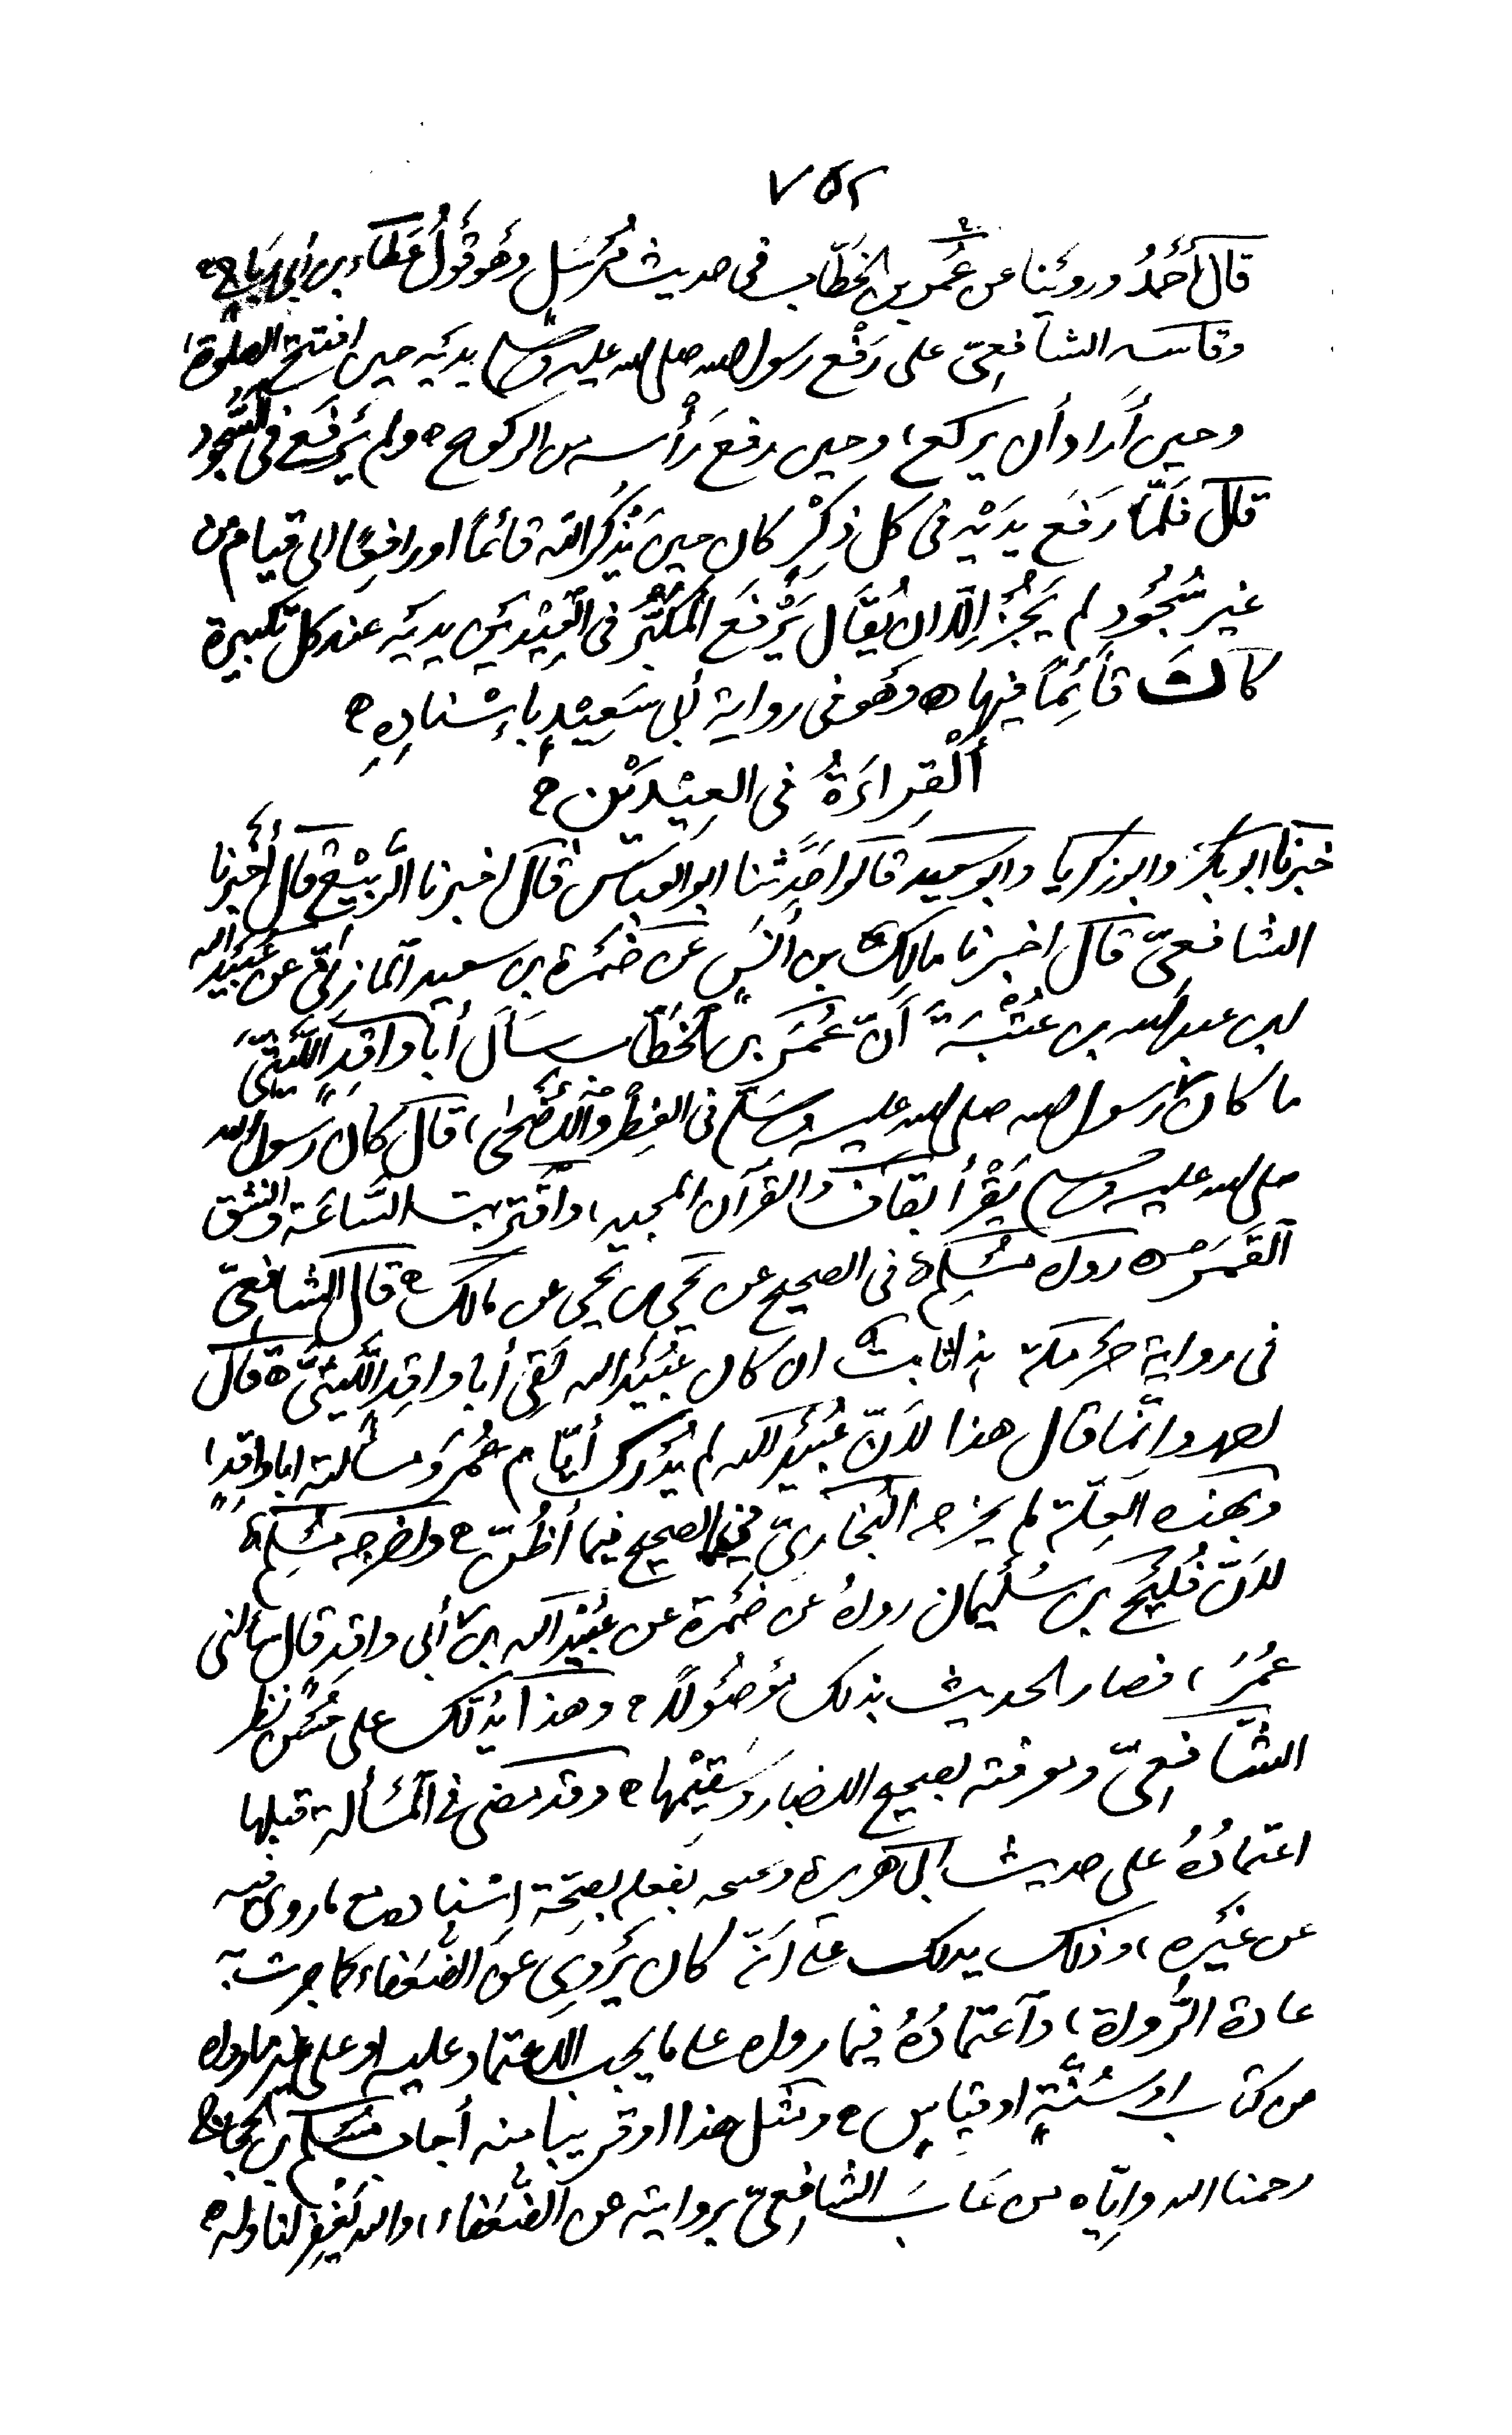 ٧٥٢
قال أحمدُ وروَيْنا عن عُمر بن الخطّاب في حديث مُرسَلٍ وهو قولُ عَطاء بن أبي رباح
وقاسه الشافعيّ على رَفْع رسول الله صلى الله عليه وسلم يديْه حين افتتح الصلوة،
وحين أراد أن يركع، وحين رفع رَأْسه من الركوع ولم يَرفَع في السُّجود
قال فَلَمّا رَفَع يدَيْه في كل ذِكْرٍ كان حين يَذْكُر الله قائمًا اورافعًا الى قيام من
غير سُجُودٍ لم يَجُز إلّا ان يُقَال يَرْفَع المُكبِّر في العِيْدَين يديَه عند كل تكبيرة
كانَ قائِمًا فيها وهو في رواية أبي سَعِيْدٍ بإسْنادِهِ
ألْقِراءَةُ في العِيْدَيْن
خبرنا ابو بكر وابو زكريا وابو سعيد قالوا حَدَّثنا ابو العباس قال اخبرنا الرَّبيْع قال أخْبَرنا
الشافعيّ قال اخبرنا مالك بن أنَسٍ عَن ضَمْرة بن سعيد المازنيّ عن عُبَيْد الله
بن عبد الله بن عُتْبَةَ أنّ عُمَر بن الخطّاب سَأل أبا واقدٍ اللَّيثيّ
ما كان رسول الله صلى الله عليه وسلم في الفِطْر والأضْحَى، قال كان رسول الله
صلى الله عليه وسلم يَقْرأ بقاف والقرآن المجيد، واقتربت السَّاعَة وانشق
القَمَر رواه مُسْلِم في الصحيح عن يحيى بن يحيى عن مالك قال الشافعيّ
في رواية حَرْمَلة هذا ثابتٌ ان كان عُبَيْد الله لَقِيَ أبا واقِدٍ اللَّيثيّ قال
احمد وانَّما قال هذا لأنّ عُبَيْد الله لم يُدْرك أيّام عُمَرَ ومسألته ابا واقدٍ،
وبهذه العِلّة لم يخرجه البُخاريّ في الصحيح فيما أظُنّ واخرجه مُسْلِم
لأنّ فُلَيْح بن سُلَيمان رواهُ عن ضَمْرة عن عُبَيْد الله عن أبي واقدٍ قال سألني
عُمَرُ، فصار الحديث بذلك مَوْصُولًا وهذا يَدُلّك على حُسْن نظر
الشّافعيّ ومعرفته بصحيح الاخبار وسَقِيْمها وقد مضى في المَسْألة قبلها
اعتمادُهُ على حديث أبي هريرة بصِحّة إسْناده مع ما روى فيه
عن غَيْرِهِ، وذلك يدلك على أنّه كان يَرْوِي عن الضُّعَفاء كما جرت به
عادة الرُّواة، واعتمادُهُ فيما رواه على ما يجب الاعتماد عليه او على غير ما رواه
من كتاب او سُنّةٍ او قياسٍ ومثل هذا او قريبا منه أجاب مُسلم بن الحجاج
رحمنا الله وايّاه من عَابَ الشافعيّ بروايته عن الضُّعَفاء، والله يَغْفِر لنا وله